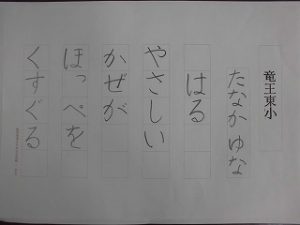 竜王東小
たなかゆな
はる
やさしい
かぜが
ほっぺを
くすぐる